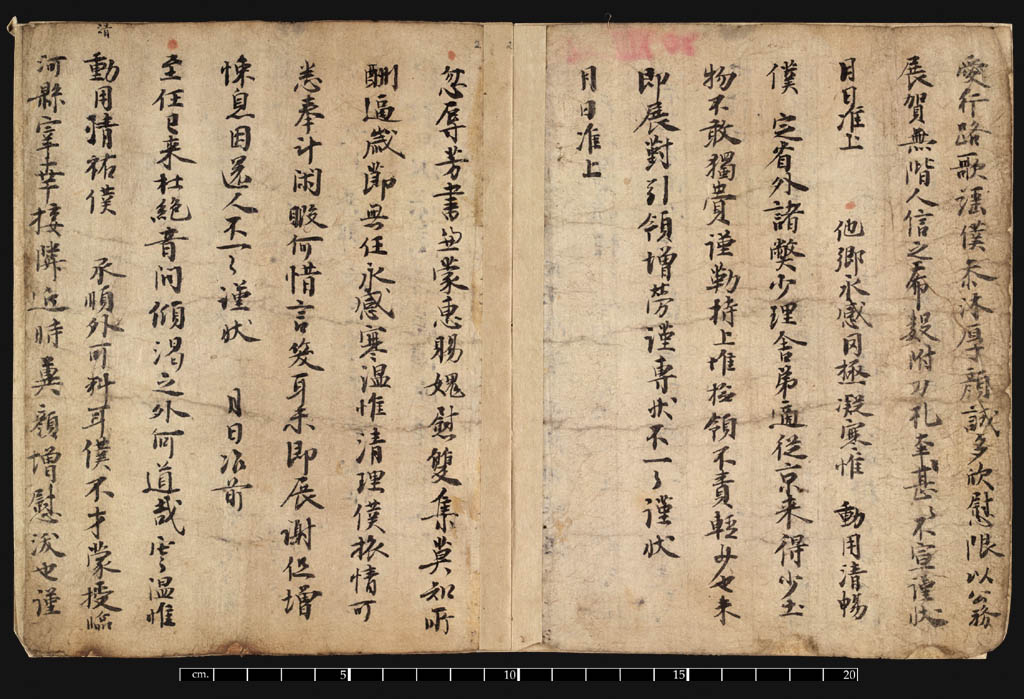 愛行路歌謡僕忝沐厚顔誠多欣慰限以公務
展賀無階人信之希附刀札至甚〻不宣謹狀
月日准上　他鄉永感同極凝寒惟　動用清暢
僕　定省外諸弊少理舍弟適從京來得少土
物不敢獨賞謹勒持上惟捡領不責輕少也未
即展對引領增勞謹專狀不一〻謹狀
月日准上
忽辱芳書兼蒙惠賜媿慰雙集莫知所
酬逼歲節無任永感寒溫惟清理僕旅情可
悉奉計閑暇何惜言笑耳未即展謝但增
悚息因還人不一〻謹狀　月日准前
至任已来杜絶音問傾渴之外何道哉寒溫惟
清
動用清祐僕　承順外可料耳僕不才蒙授臨
河縣宰幸接隣近時冀顔增慰浣也謹
cm. 5 10 15 20